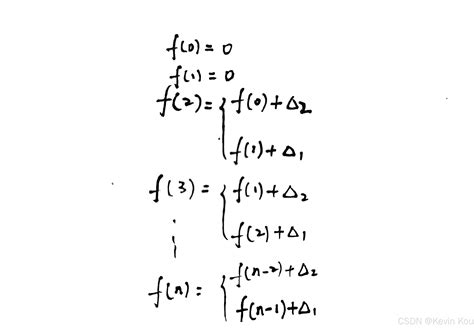 f(0) = 0
f(1) = 0
f(2) = { f(0) + Δ2
f(1) + Δ1
f(3) = { f(1) + Δ2
f(2) + Δ1
⋮
f(n) = { f(n-2) + Δ2
f(n-1) + Δ1
CSDN @Kevin Kou